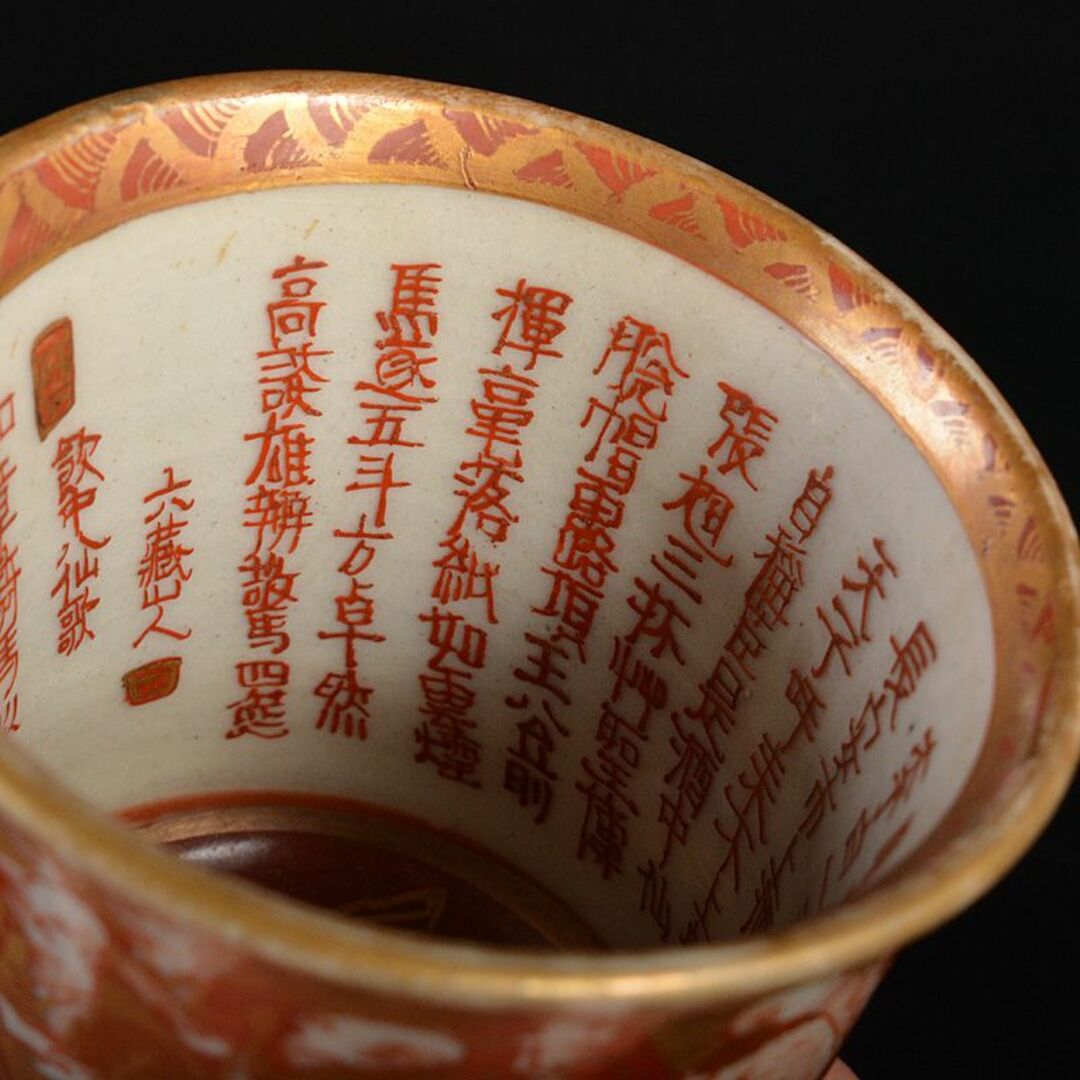 長安市上
天子呼来不上
自稱臣是酒中仙
張旭三杯艸聖傳
脱帽露頂王公前
揮毫落紙如雲煙
焦遂五斗方卓然
高談雄辨驚四筵
六藏山人
飲中八仙歌
知章騎馬似